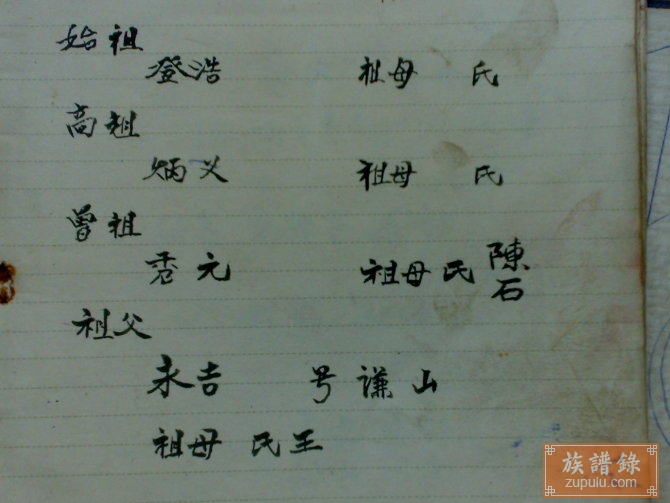 始祖
登浩 祖母 氏
高祖
炳义 祖母 氏
曾祖
秀元 祖母氏 陳石
祖父
永吉 号 谦山
祖母 氏王
族譜錄
zupulu.com